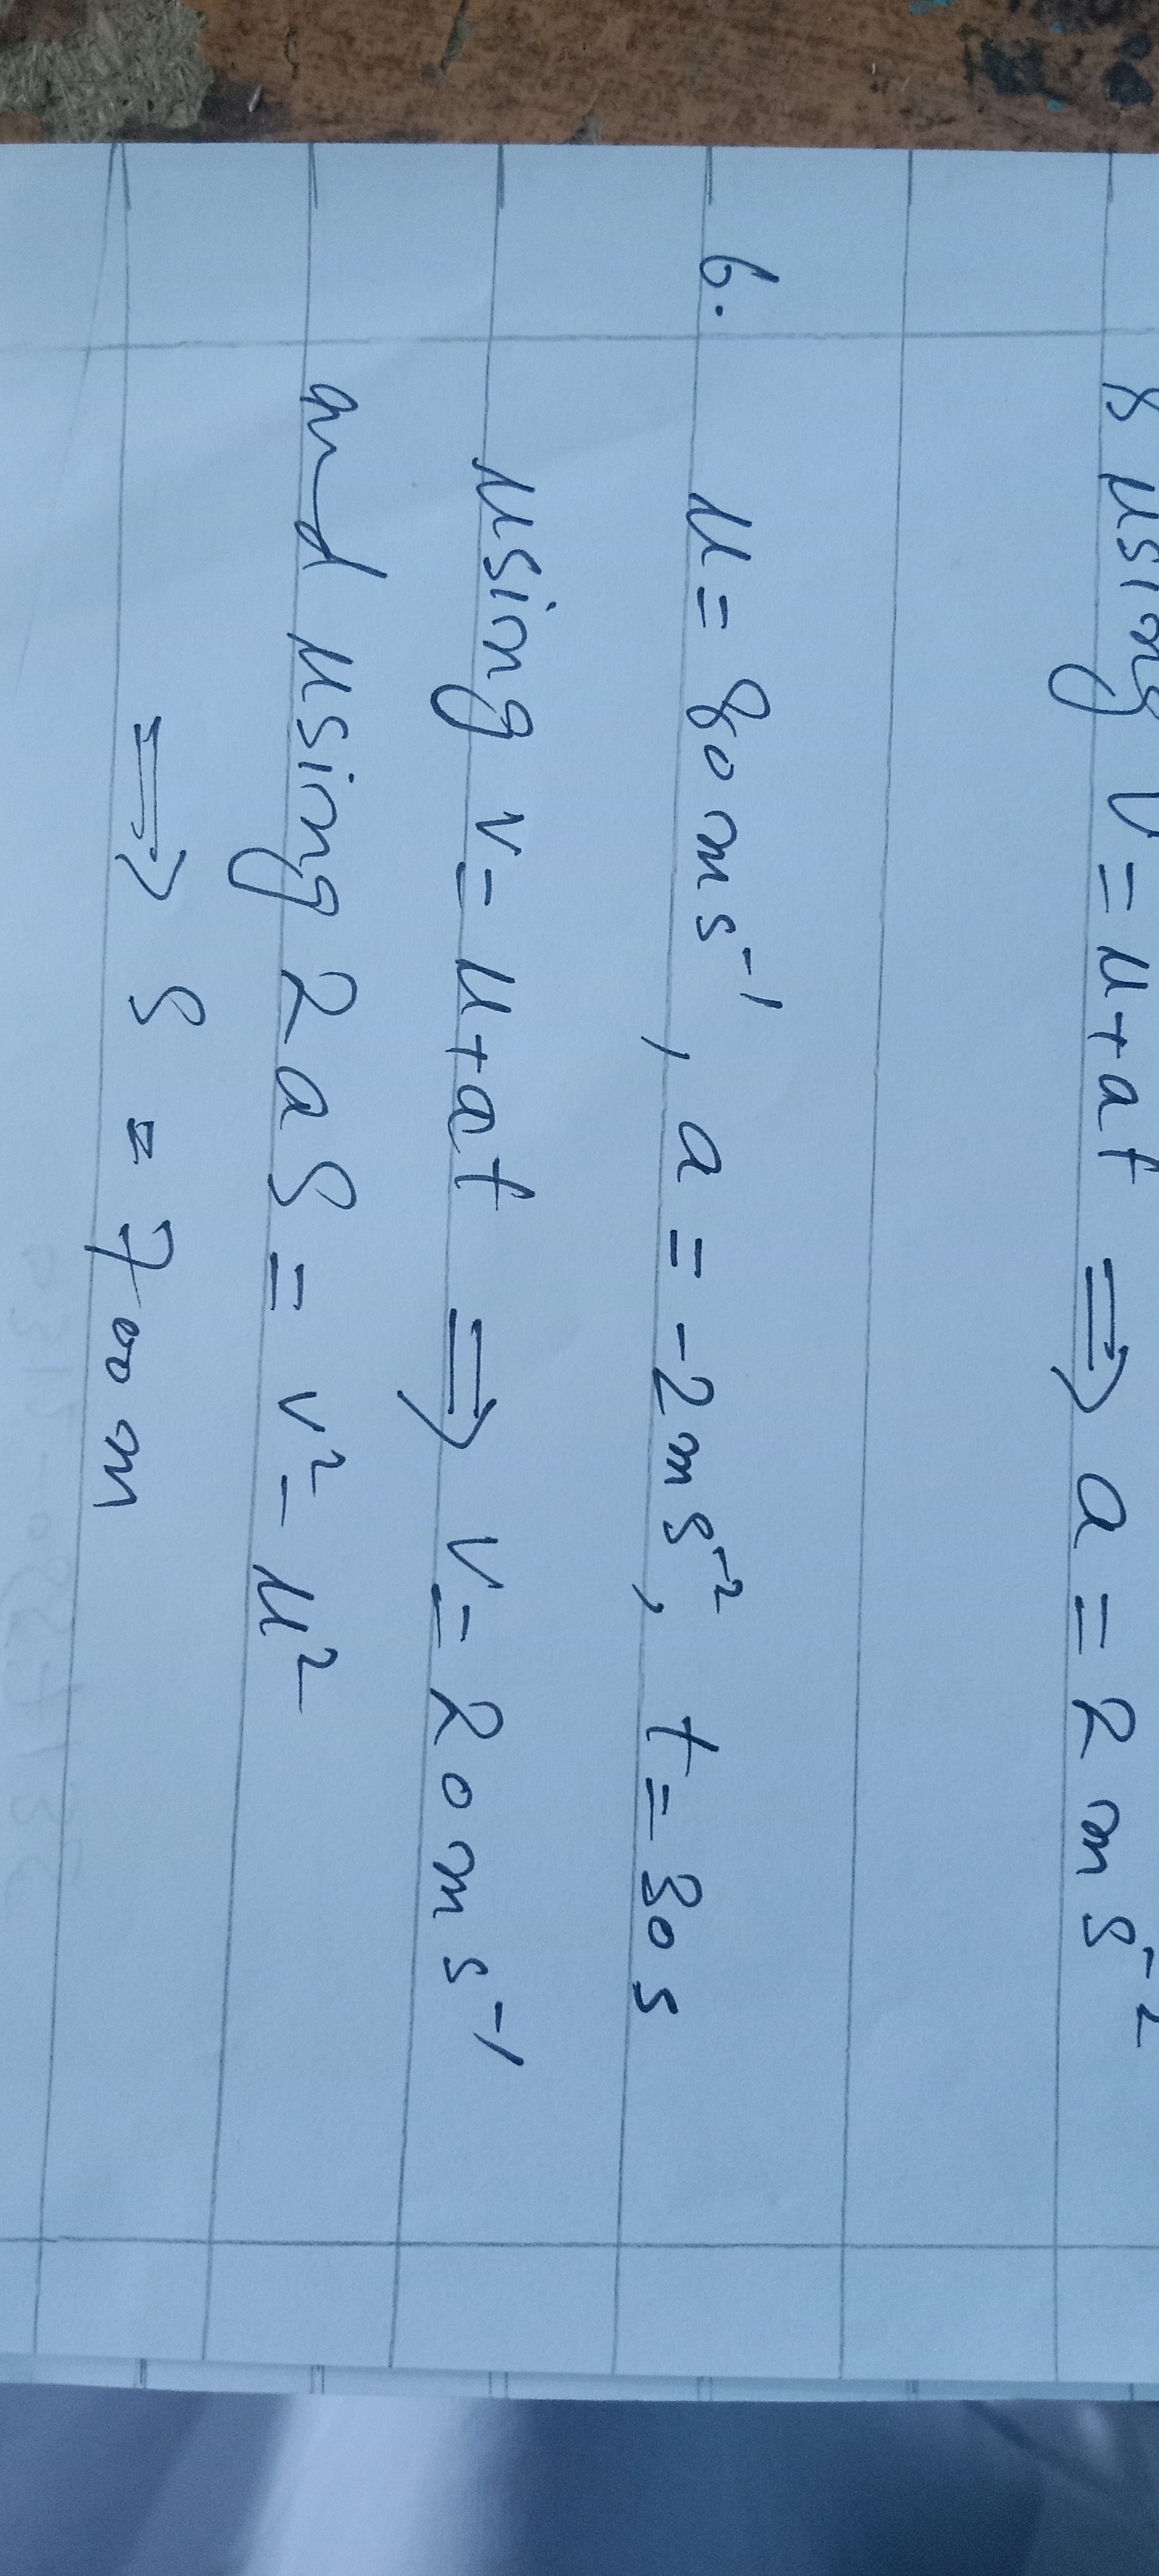 & using v = u+at ⟹ a = 2 m s⁻²
6. u = 80 ms⁻¹, a = -2 m s⁻², t = 30 s
using v = u+at ⟹ v = 20 m s⁻¹
and using 2 a S = v² - u²
⟹ S = 700 m